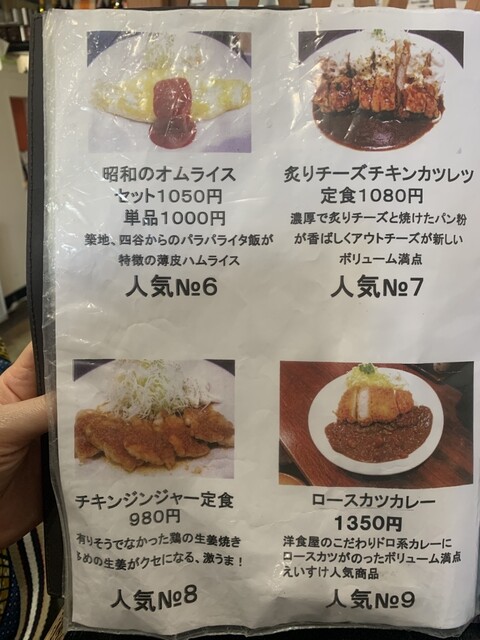 昭和のオムライス
セット1050円
単品1000円
築地、四谷からのパラパライタ飯が
特徴の薄皮ハムライス
人気№6
炙りチーズチキンカツレッ
定食1080円
濃厚で炙りチーズと焼けたパン粉
が香ばしくアウトチーズが新しい
ボリューム満点
人気№7
チキンジンジャー定食
980円
有りそうでなかった鶏の生姜焼き
多めの生姜がクセになる、激うま！
人気№8
ロースカツカレー
1350円
洋食屋のこだわりドロ系カレーに
ロースカツがのったボリューム満点
えいすけ人気商品
人気№9